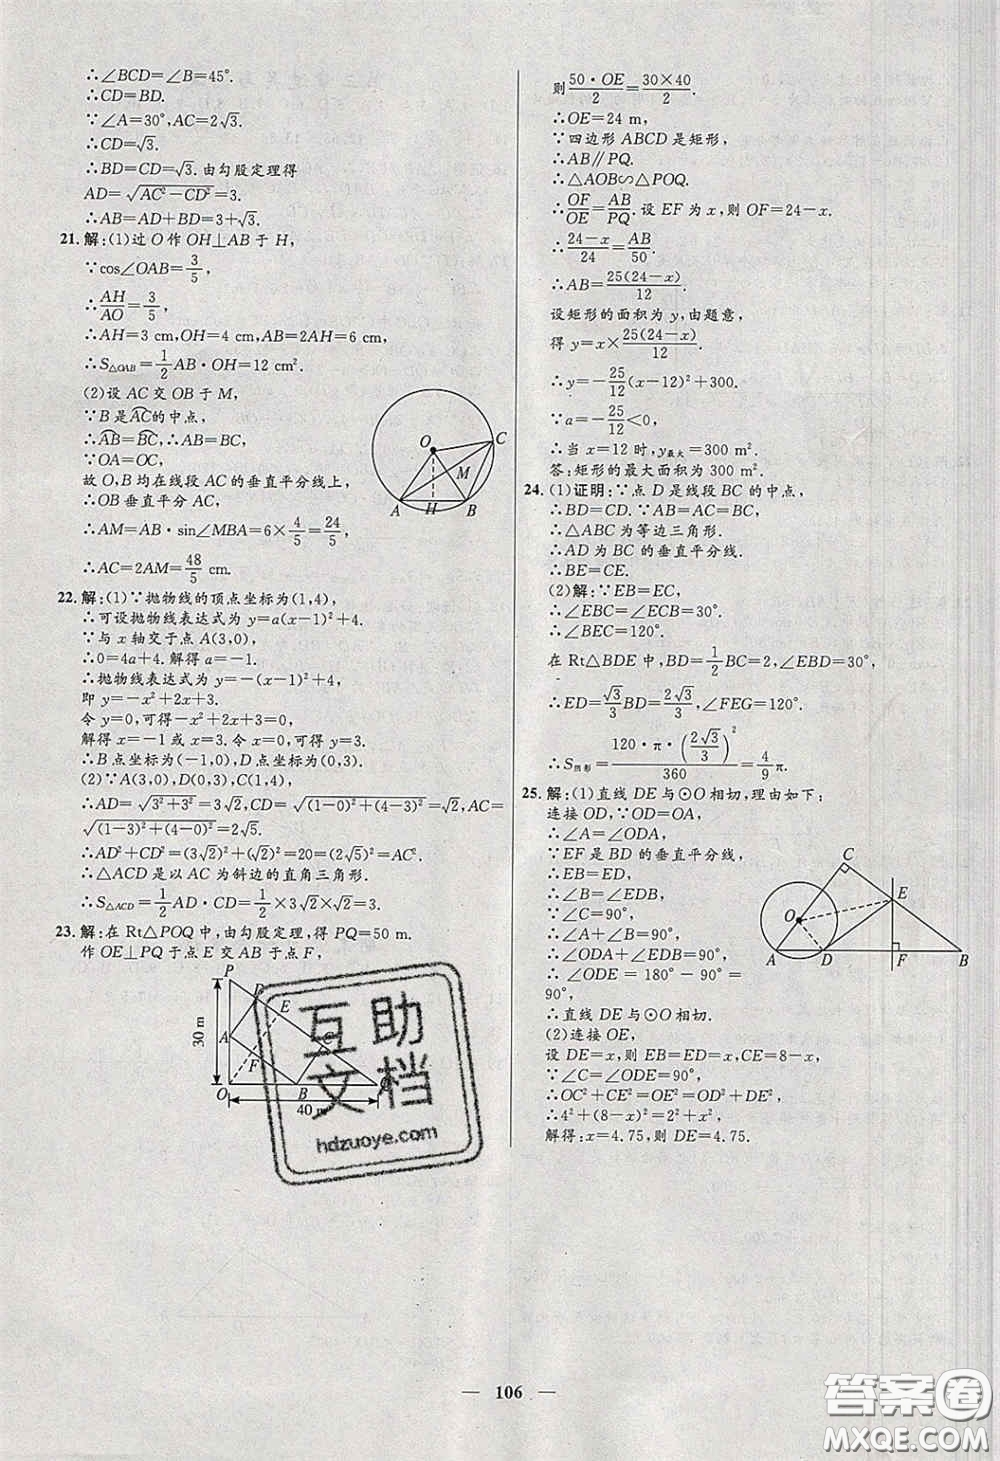 ∴∠BCD=∠B=45°.
∴CD=BD.
∵∠A=30°,AC=2√3.
∴CD=√3.
∴BD=CD=√3.由勾股定理得
AD=√(AC²-CD²)=3.
∴AB=AD+BD=3+√3.
21.解:(1)过O作OH⊥AB于H,
∵cos∠OAB=3/5,
∴AH/AO=3/5,
∴AH=3 cm,OH=4 cm,AB=2AH=6 cm,
∴S△OAB=1/2 AB·OH=12 cm².
(2)设AC交OB于M,
∵B是AC的中点,
∴AB=BC,∴AB=BC,
∵OA=OC,
故O,B均在线段AC的垂直平分线上,
∴OB垂直平分AC,
∴AM=AB·sin∠MBA=6×4/5=24/5,
∴AC=2AM=48/5 cm.
O
C
M
A
H
B
22.解:(1)∵抛物线的顶点坐标为(1,4),
∴可设抛物线表达式为y=a(x-1)²+4.
∵与x轴交于点A(3,0),
∴0=4a+4.解得a=-1.
∴抛物线表达式为y=-(x-1)²+4,
即y=-x²+2x+3.
令y=0,可得-x²+2x+3=0.
解得x=-1或x=3.令x=0,可得y=3.
∴B点坐标为(-1,0),D点坐标为(0,3).
(2)∵A(3,0),D(0,3),C(1,4)
∴AD=√(3²+3²)=3√2,CD=√((1-0)²+(4-3)²)=√2,AC=
√((1-3)²+(4-0)²)=2√5.
∴AD²+CD²=(3√2)²+(√2)²=20=(2√5)²=AC².
∴△ACD是以AC为斜边的直角三角形.
∴S△ACD=1/2 AD·CD=1/2×3√2×√2=3.
23.解:在Rt△POQ中,由勾股定理,得PQ=50 m.
作OE⊥PQ于点E交AB于点F,
P
D
E
30 m
A
F
O
B
40 m
互助
文档
hdzuoye.com
则 50·OE/2=30×40/2.
∴OE=24 m,
∵四边形ABCD是矩形,
∴AB∥PQ.
∴△AOB∽△POQ.
∴OF/OE=AB/PQ.设EF为x,则OF=24-x.
∴(24-x)/24=AB/50.
∴AB=25(24-x)/12.
设矩形的面积为y,由题意,
得y=x×25(24-x)/12.
∴y=-25/12(x-12)²+300.
∵a=-25/12<0,
∴当x=12时,y最大=300 m².
答:矩形的最大面积为300 m².
24.(1)证明:∵点D是线段BC的中点,
∴BD=CD.∵AB=AC=BC,
∴△ABC为等边三角形.
∴AD为BC的垂直平分线.
∴BE=CE.
(2)解:∵EB=EC,
∴∠EBC=∠ECB=30°.
∴∠BEC=120°.
在Rt△BDE中,BD=1/2 BC=2,∠EBD=30°,
∴ED=√3/3 BD=2√3/3,∠FEG=120°.
∴S扇形=120·π·(2√3/3)²/360=4/9 π.
25.解:(1)直线DE与⊙O相切,理由如下:
连接OD,∵OD=OA,
∴∠A=∠ODA,
∵EF是BD的垂直平分线,
∴EB=ED,
∴∠B=∠EDB,
∵∠C=90°,
∴∠A+∠B=90°,
∴∠ODA+∠EDB=90°,
∴∠ODE=180°-90°=
90°,
∴直线DE与⊙O相切.
(2)连接OE,
设DE=x,则EB=ED=x,CE=8-x,
∵∠C=∠ODE=90°,
∴OC²+CE²=OE²=OD²+DE²,
∴4²+(8-x)²=2²+x²,
解得:x=4.75,则DE=4.75.
C
O
E
A
D
F
B
— 106 —
答案圈
MXQE.COM